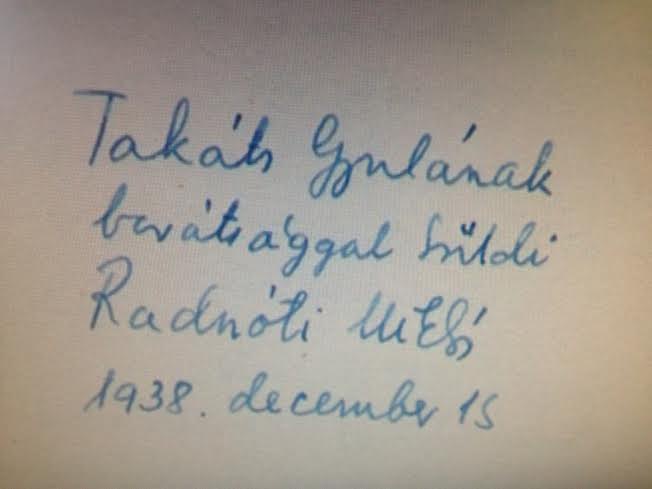 Takáts Gyulának
barátsággal küldi
Radnóti Miklós
1938. december 15